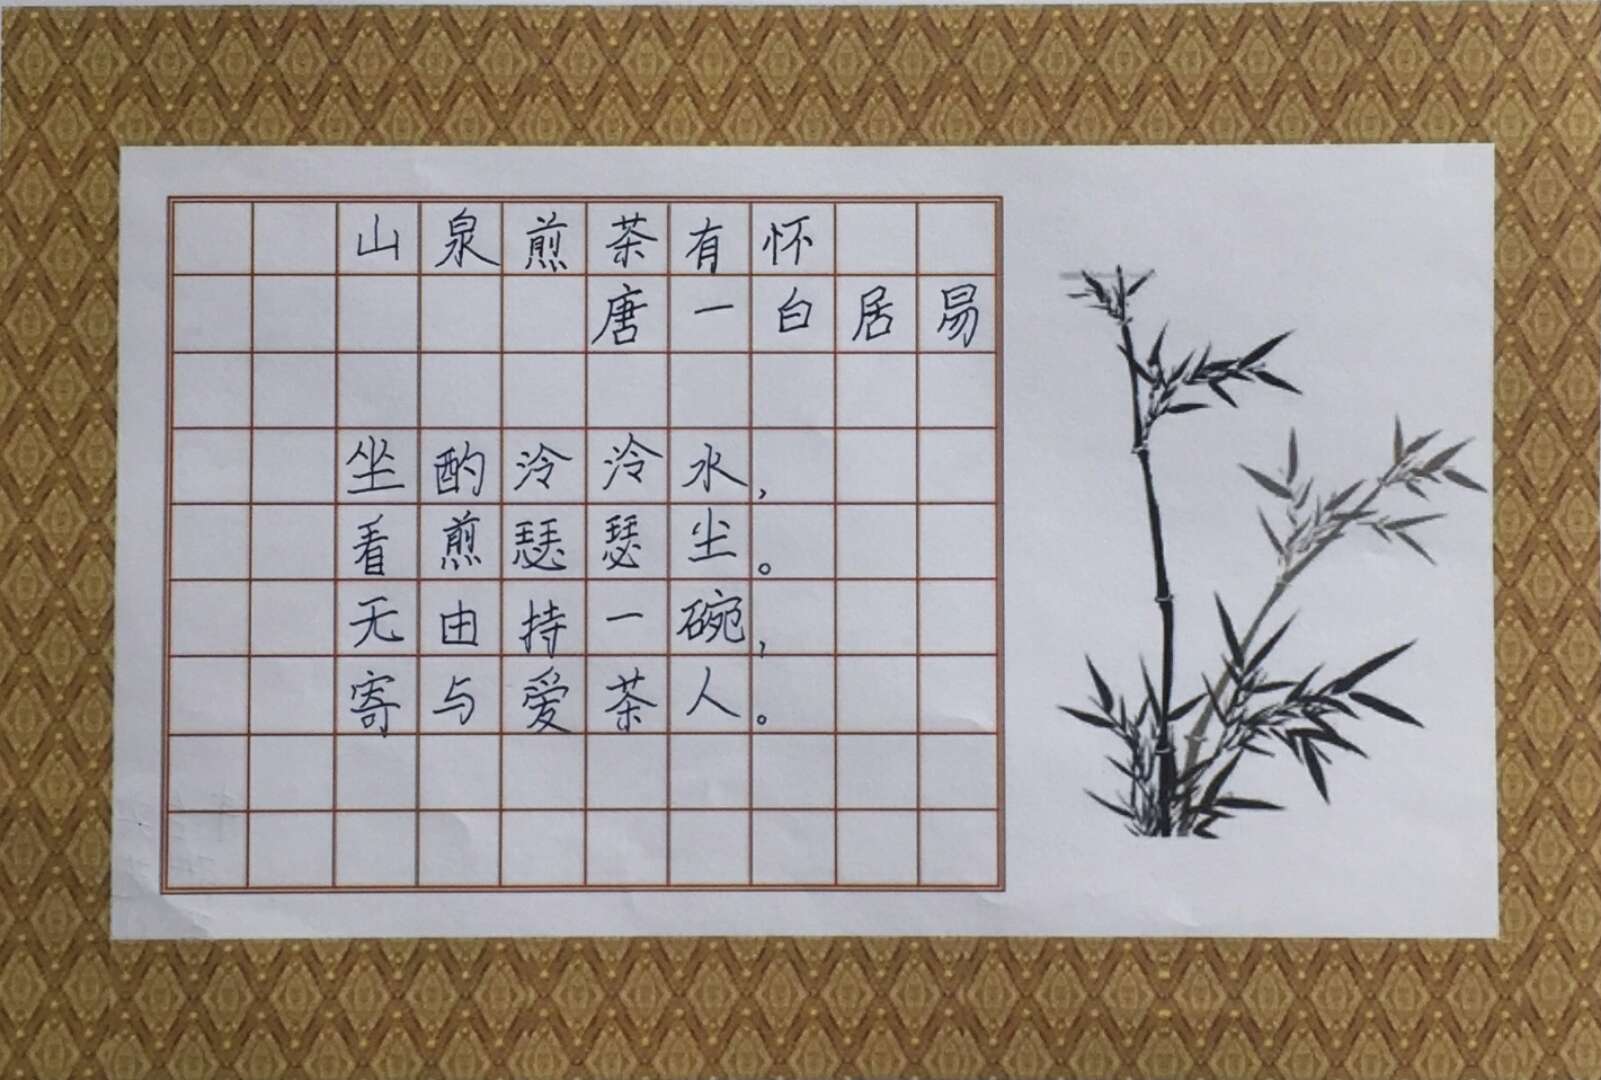 山泉煎茶有怀
唐一白居易
坐酌泠泠水,
看煎瑟瑟尘。
无由持一碗,
寄与爱茶人。